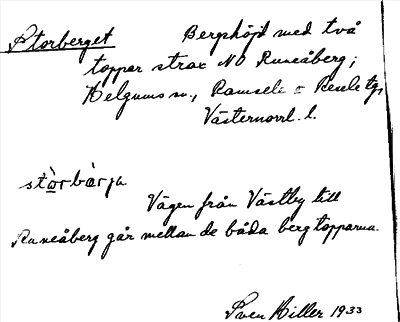 Storberget Bergshöjd med två
toppar strax NO Runeåberg,
Helgums sn., Ramsele o Resele tg,
Västernorrl. l.
stòrbàrja
Vägen från Västby till
Runeåberg går mellan de båda bergtopparna.
Sven Hiller 1933